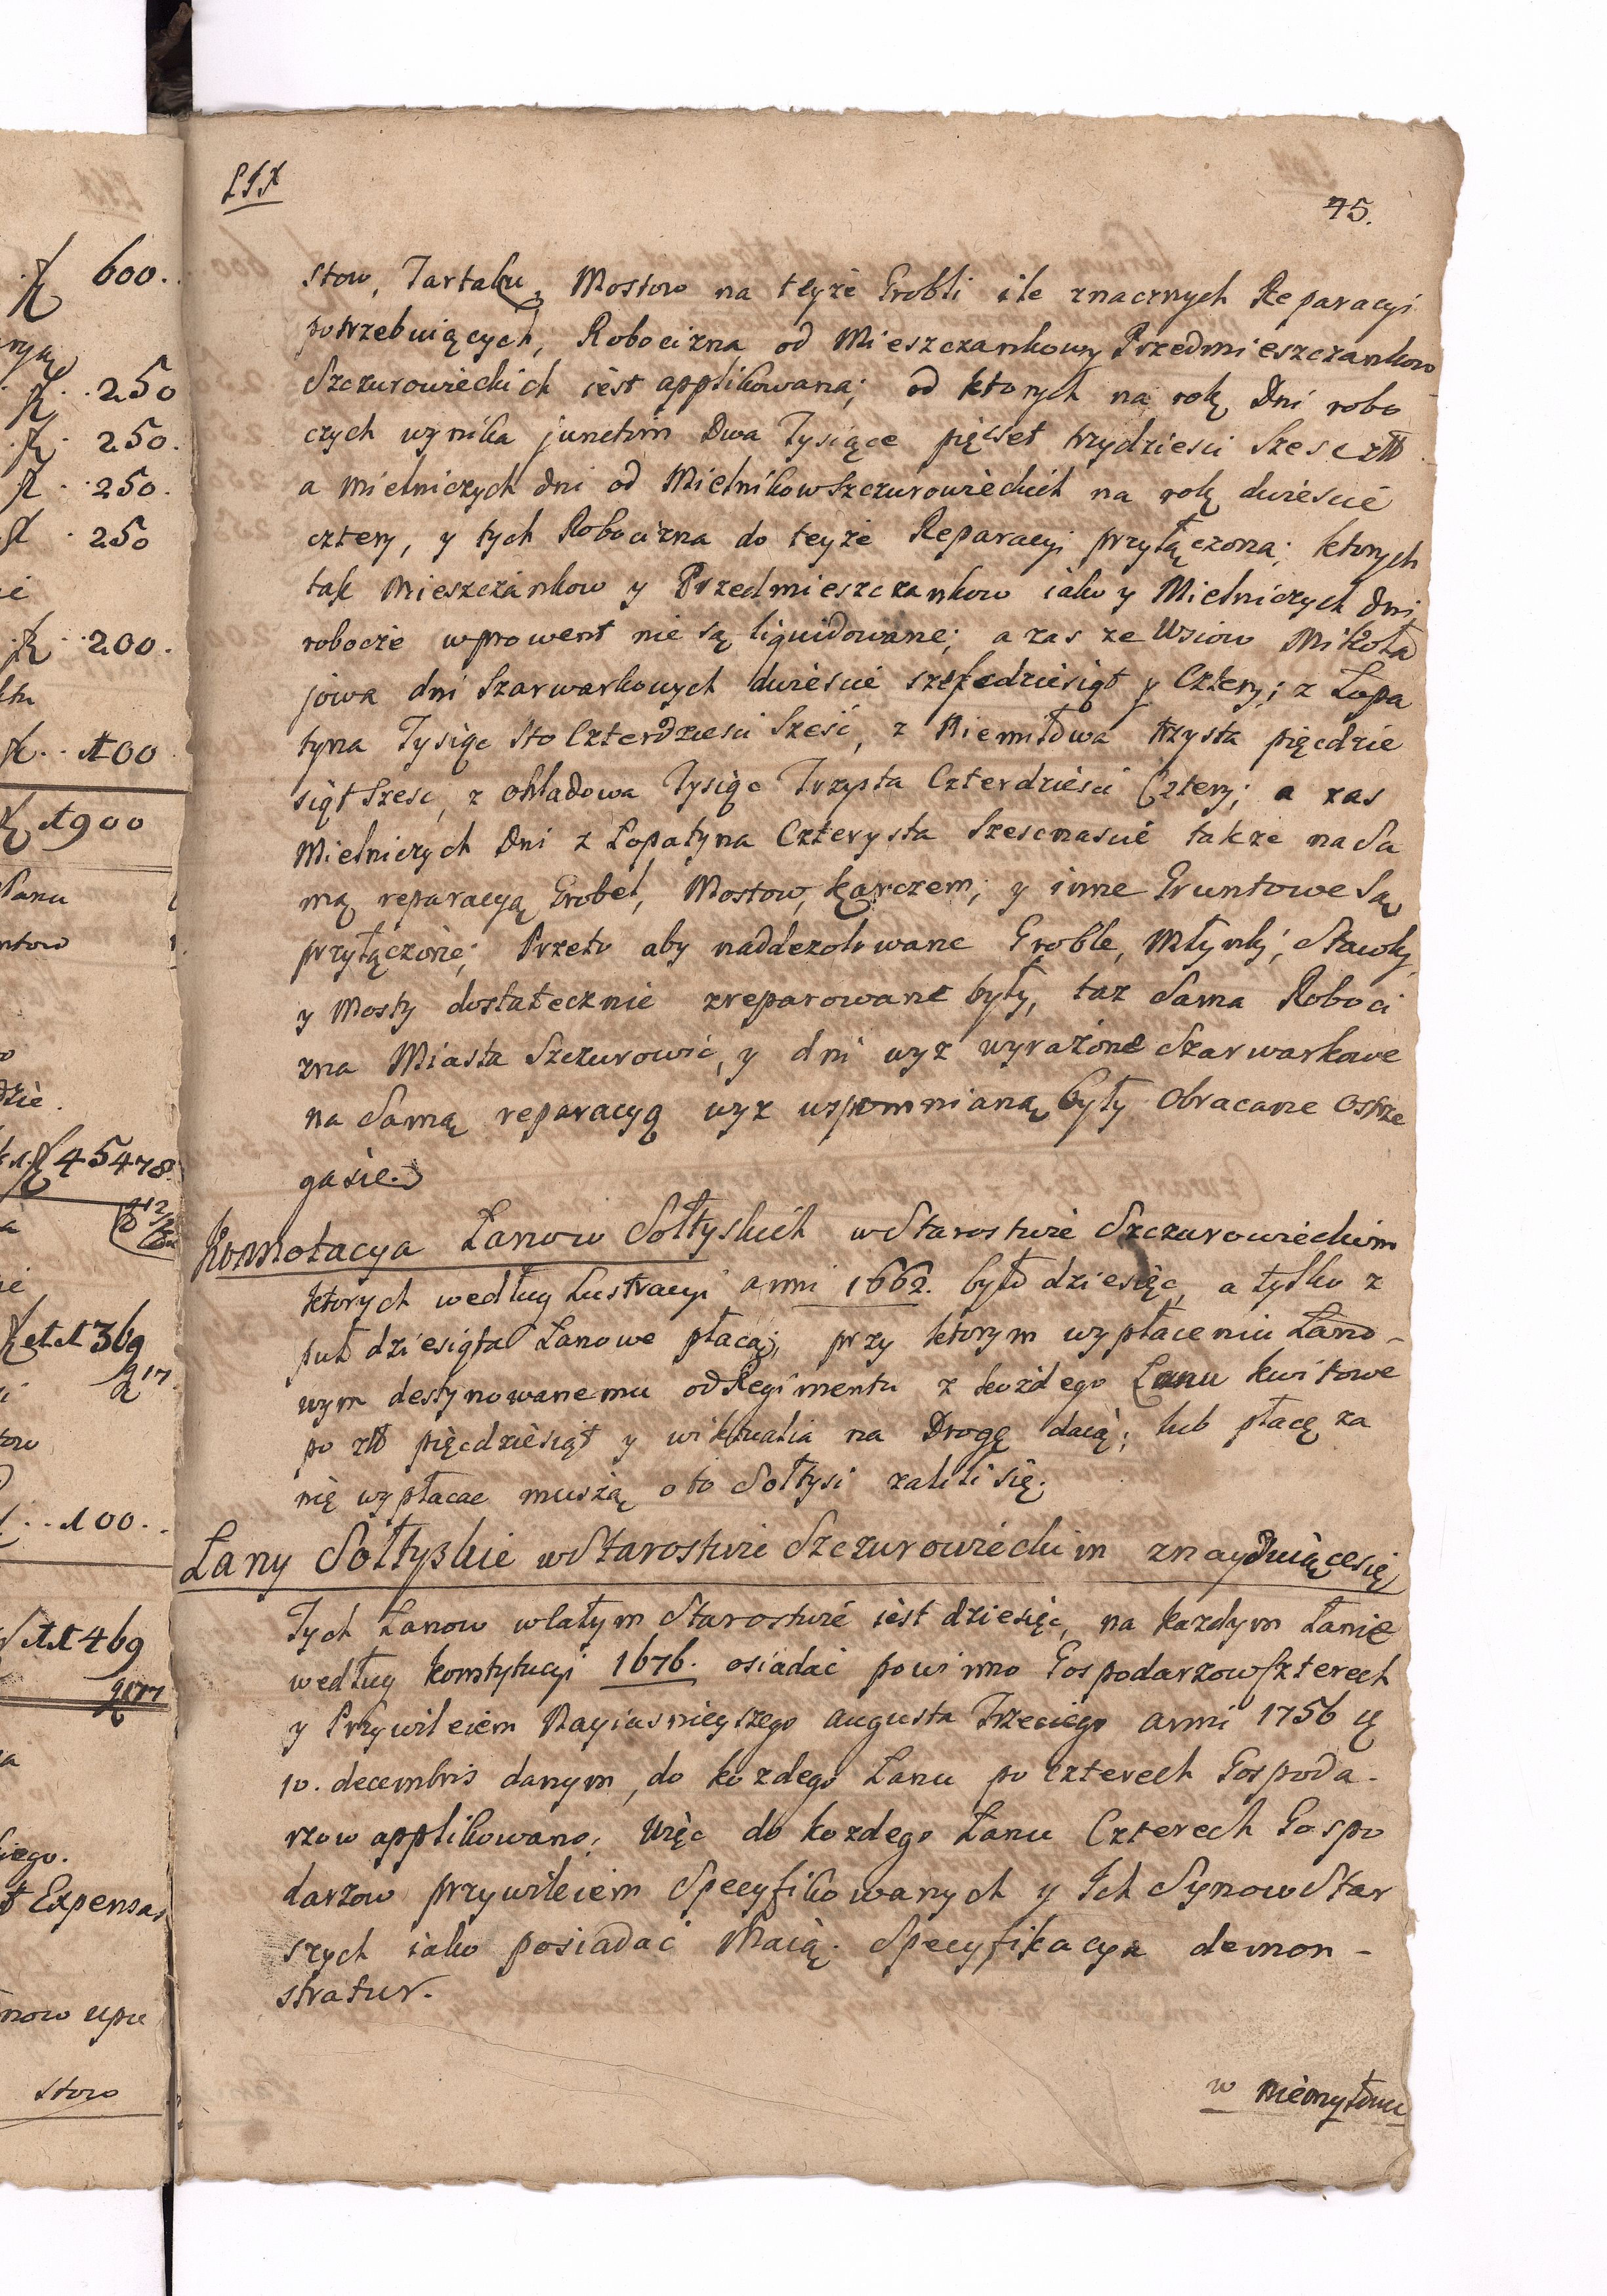 600.
250
250.
250.
250
200.
100
1900
Panu
45478.
369
100.
469
Expensas
now upu
stow
LIX
45.
stow, Tartaku, Mostow na teyże Grobli ile znacznych Reparacyi
potrzebuiących, Robocizna od Mieszczankow y Przedmieszczankow
Szczurowieckich iest applikowana; od ktorych na rok Dni robo
czych wynika junctim Dwa Tysiące pięcset trzydziesci Szesc
a Mielniczych dni od Mielnikow Szczurowieckich na rok dwiescie
cztery, y tych Robocizna do teyże Reparacyi przyłączona; ktorych
tak Mieszczankow y Przedmieszczankow iako y Mielniczych dni
robocze w prowent nie są liquidowane; a zas ze Wsiow Mikoła
jowa dni Szarwarkowych dwiescie szescdziesiąt y Cztery; z Łopa
tyna Tysiąc Sto Czterdziesci Szesć, z Niemiłowa trzysta pięcdzie
siąt Szesc, z Okładowa Tysiąc Trzysta Czterdziesci Cztery; a zas
Mielniczych Dni z Łopatyna Czterysta Szesnascie także na Sa
mą reparacyą Grobel, Mostow, karczem; y inne Gruntowe Są
przyłączone; Przeto aby naddezolowane Groble, Młynki, Stawki,
y Mosty dostatecznie zreparowane były, taż Sama Roboci
zna Miasta Szczurowic, y dni wyz wyrażone Szarwarkowe
na Samą reparacyą wyz wspomnianą były obracane ostrze
ga sie.
Konnotacya Łanow Sołtyskich w Starostwie Szczurowieckim
ktorych według Lustracyi anni 1662. było dziesięc, a tylko z
puł dziesiąta Łanowe płacą; przy ktorym wypłaceniu Łano-
wym destynowanemu od Regimentu z każdego Łanu kwitowe
po zł pięcdziesiąt y wiktualia na Drogę daią; lub płacę za
nię wypłacac muszą o to Sołtysi żalili się.
Łany Sołtyskie w Starostwie Szczurowieckim znayduiące się
Tych Łanow w całym Starostwie iest dziesięc, na każdym Łanie
według konstytucyi 1676. osiadać powinno Gospodarzow Czterech
y Przywileiem Nayiasnieyszego Augusta Trzeciego anni 1756
10. decembris danym, do każdego Łanu po Czterech Gospoda-
rzow applikowano; Więc do każdego Łanu Czterech Gospo
darzow przywileiem Specyfikowanych y Ich Synow Star
szych iako posiadać Maią. Specyfikacya demon-
stratur.
w Niemyłowu